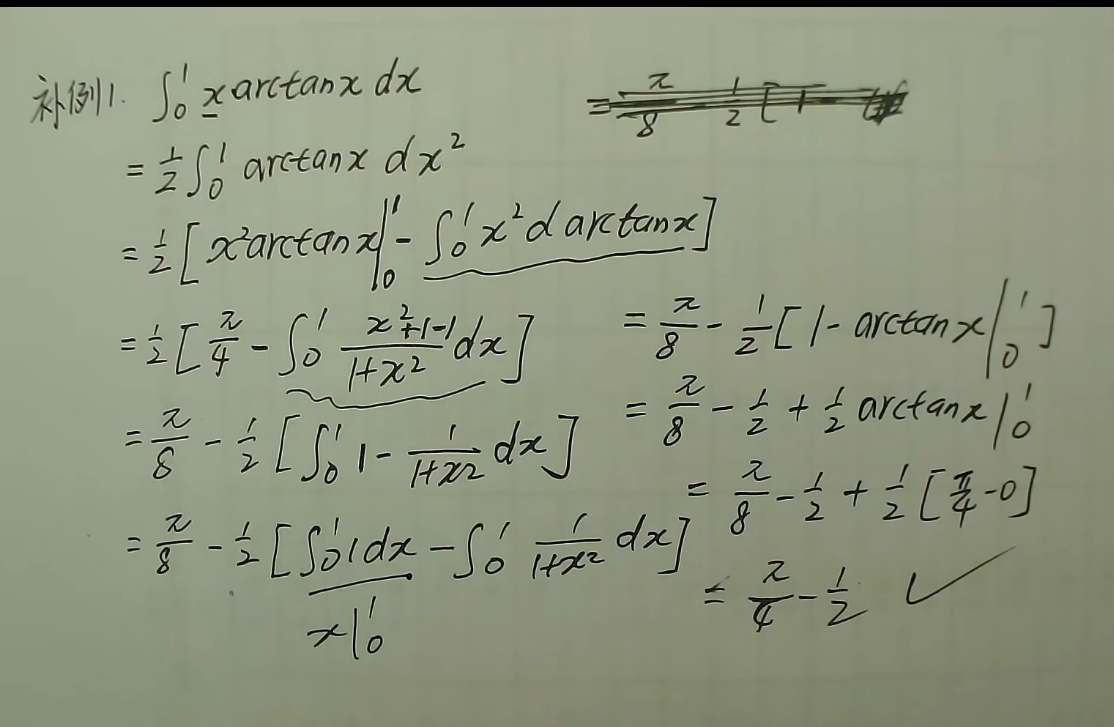 补例1. ∫₀¹ x arctanx dx
= 1/2 ∫₀¹ arctanx dx²
= 1/2 [x²arctanx|₀¹ - ∫₀¹ x² d arctanx]
= 1/2 [π/4 - ∫₀¹ (x²+1-1)/(1+x²) dx]
= π/8 - 1/2 [∫₀¹ 1 - 1/(1+x²) dx]
= π/8 - 1/2 [∫₀¹ 1dx - ∫₀¹ 1/(1+x²) dx]
x|₀¹
= π/8 - 1/2 [1 - arctanx|₀¹]
= π/8 - 1/2 + 1/2 arctanx|₀¹
= π/8 - 1/2 + 1/2 [π/4 - 0]
= π/4 - 1/2 ✓